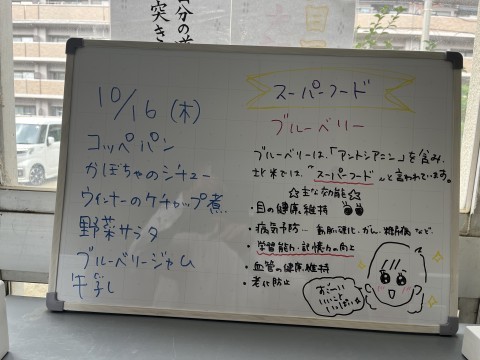 自分の道
突き
10/16(木)
コッペパン
かぼちゃのシチュー
ウインナーのケチャップ煮
野菜サラダ
ブルーベリージャム
牛乳
スーパーフード
ブルーベリー
ブルーベリーは、「アントシアニン」を含み、
北米では、"スーパーフード"と言われています。
☆主な効能☆
・目の健康維持
・病気予防…動脈硬化・がん・糖尿病など
・学習能力・記憶力の向上
・血管の健康維持
・老化防止
おーい
いいこと
いっぱい